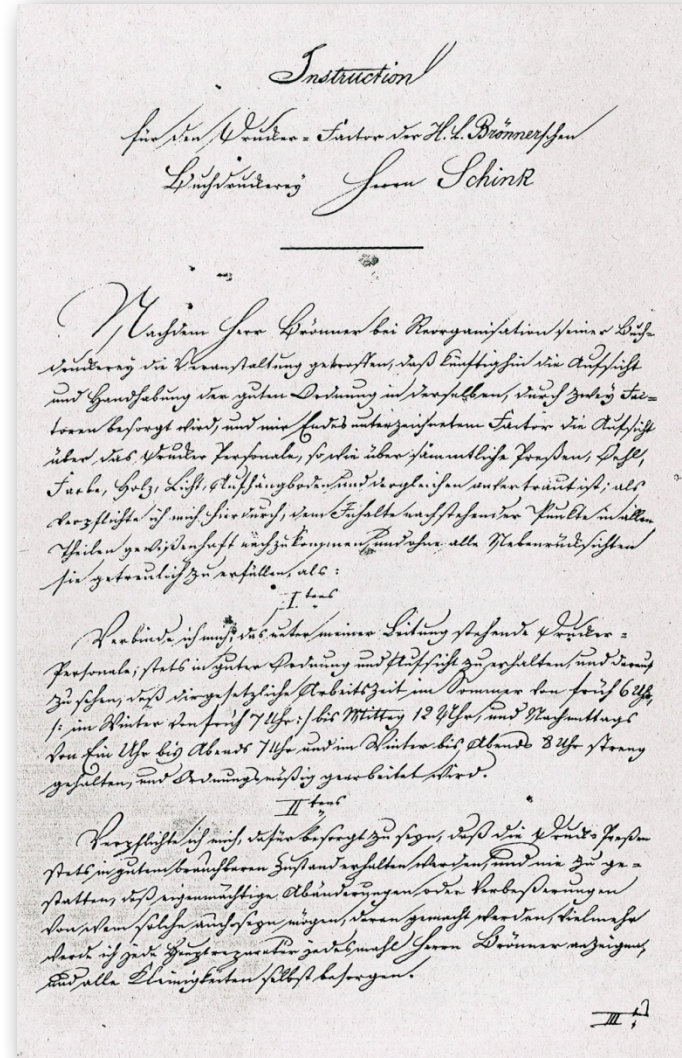 Instruction
für den Drucker-Factor der H. L. Brönnerschen
Buchdruckerey Herrn Schink
Nachdem Herr Brönner bei Reorganisation seiner Buch-
druckerey die Veranstaltung getroffen, daß künftighin die Aufsicht
und Handhabung der guten Ordnung in derselben, durch zwey Fac-
toren besorgt wird, und mir Endes unterzeichnetem Factor die Aufsicht
über das Drucker Personale, so wie über sämmtliche Preßen, Oehl,
Farbe, Holz, Licht, Aufhängboden und dergleichen anvertraut ist; als
verpflichte ich mich hierdurch, dem Inhalte nachstehender Punkte in allen
Theilen gewißenhaft nachzukommen, und ohne alle Nebenrücksichten
sie getreulich zu erfüllen, als:
I tens
Verbinde ich mich, das unter meiner Leitung stehende Drucker-
Personale, stets in guter Ordnung und Aufsicht zu erhalten, und darauf
zu sehen, daß die gesetzliche Arbeitszeit im Sommer von früh 6 Uhr,
/: im Winter von früh 7 Uhr :/ bis Mittag 12 Uhr, und Nachmittags
von Ein Uhr bis Abends 7 Uhr und im Winter bis Abends 8 Uhr streng
gehalten, und Ordnungsmäßig gearbeitet wird.
II tens
Verpflichte ich mich, dafür besorgt zu seyn, daß die Druck-Preßen
stets in gutem brauchbaren Zustand erhalten werden, und nie zu ge-
statten, daß eigenmächtige Abänderungen oder Verbeßerungen
von wem solche auch seyn mögen, daran gemacht werden, vielmehr
werde ich jede Hauptreparatur jedesmahl Herrn Brönner anzeigen,
und alle Kleinigkeiten selbst besorgen.
III t